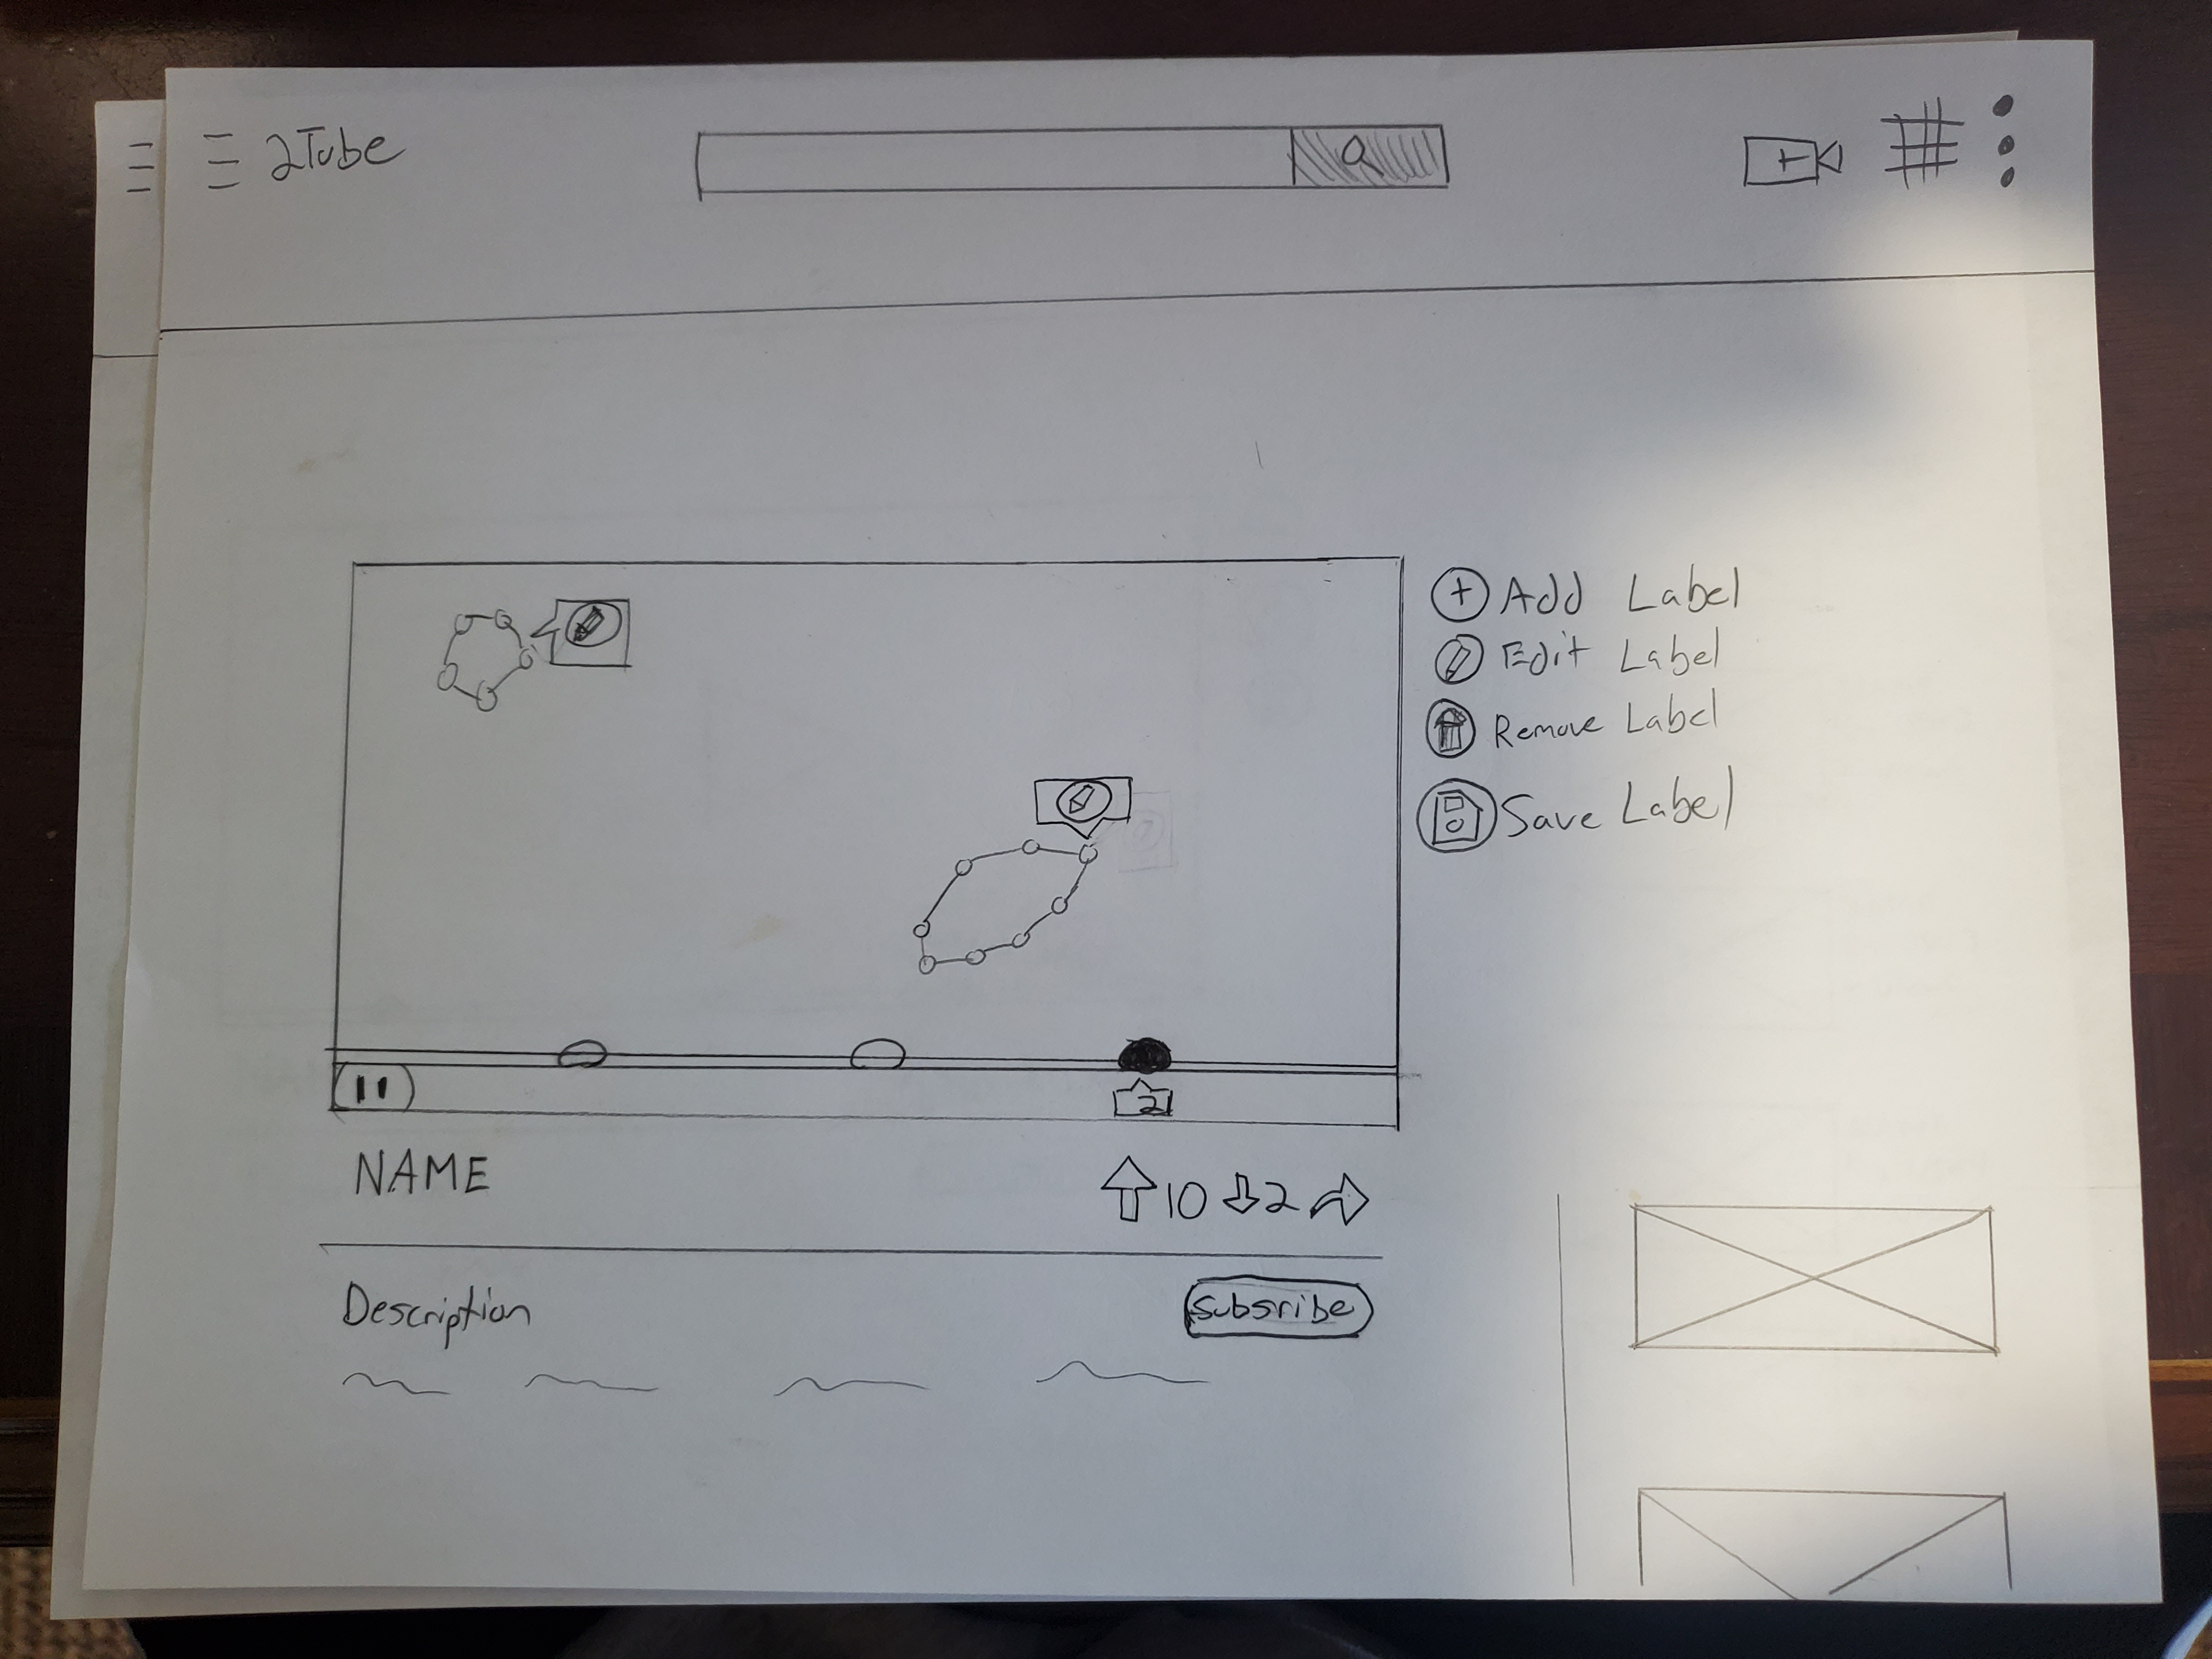 2Tube
+ Add Label
Edit Label
Remove Label
Save Label
2
NAME
10 2
Description
Subsribe